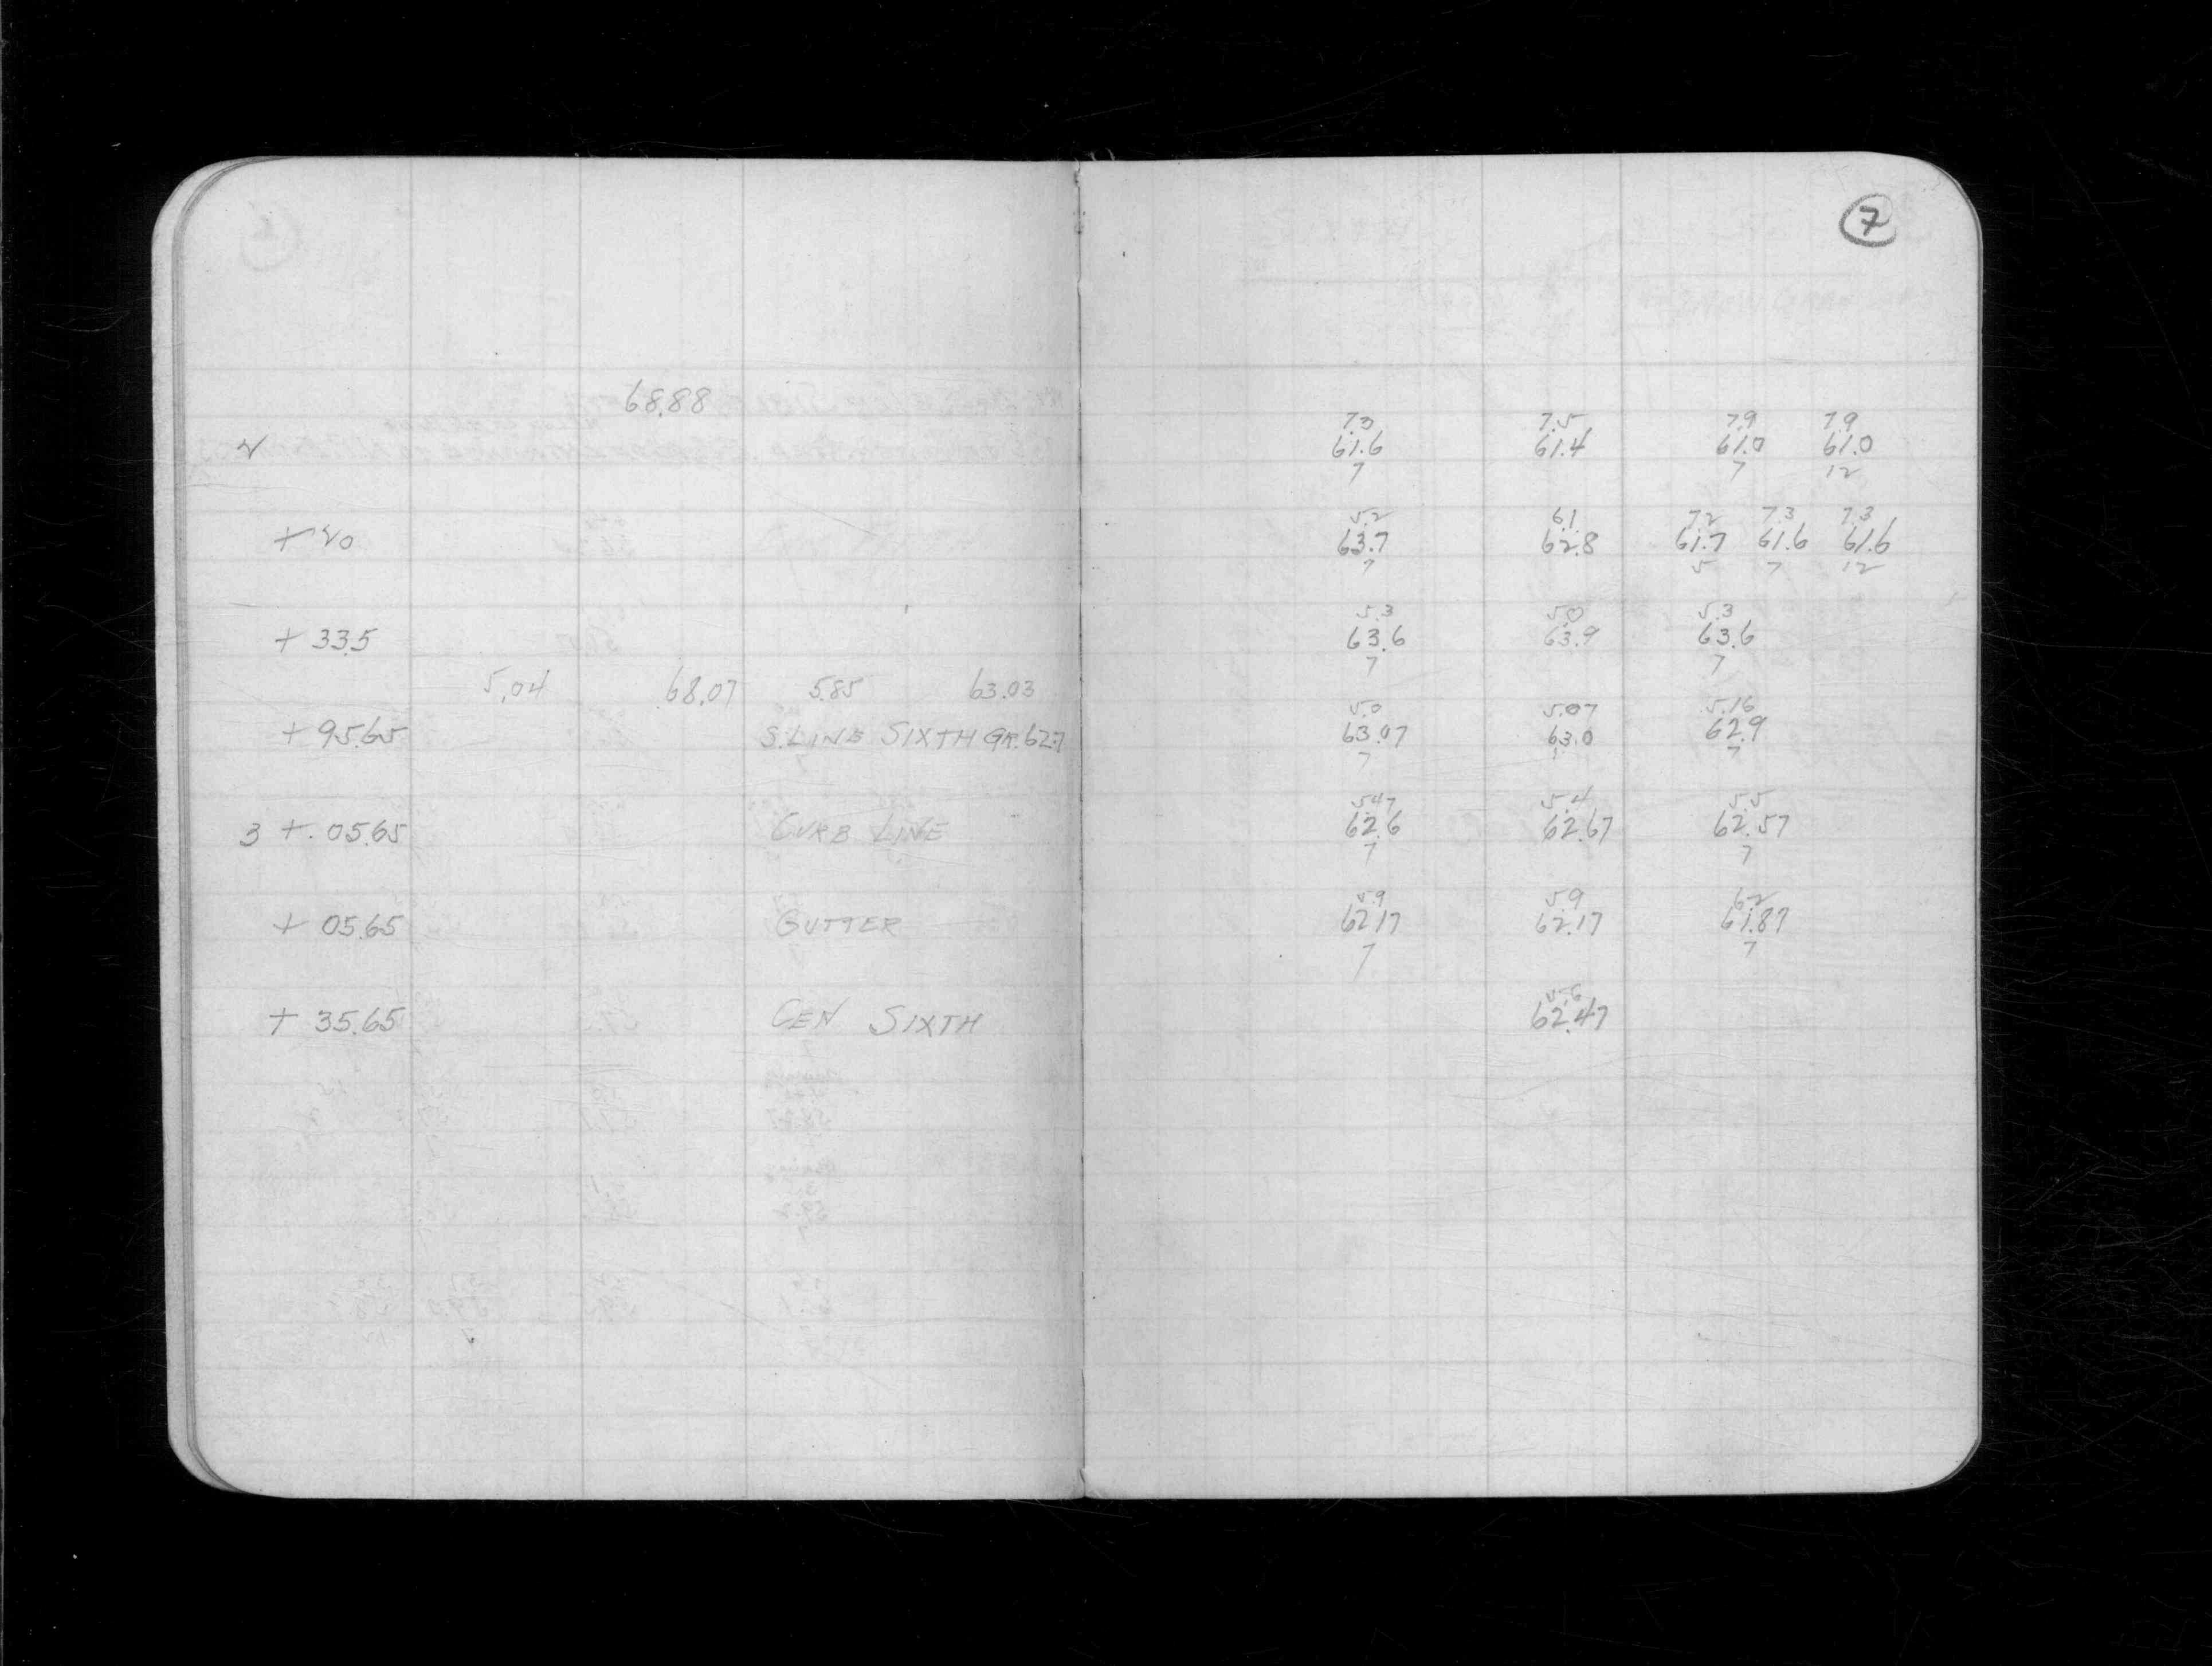 7
68.88
7.3 7.5 7.9 7.9
2 61.6 61.4 61.0 61.0
7 7 12
5.2 6.1 7.2 7.3 7.3
+ 20 63.7 62.8 61.7 61.6 61.6
7 5 7 12
5.3 5.0 5.3
+ 33.5 63.6 63.9 63.6
7 7
5.04 68.07 5.85 63.03
5.0 5.07 5.16
+ 95.65 S. LINE SIXTH GR. 62.7 63.07 63.0 62.9
7 7
5.47 5.4 5.5
3 + 05.65 CURB LINE 62.6 62.67 62.57
7 7
5.9 5.9 6.2
+ 05.65 GUTTER 62.17 62.17 61.87
7 7
5.6
+ 35.65 CEN SIXTH 62.47